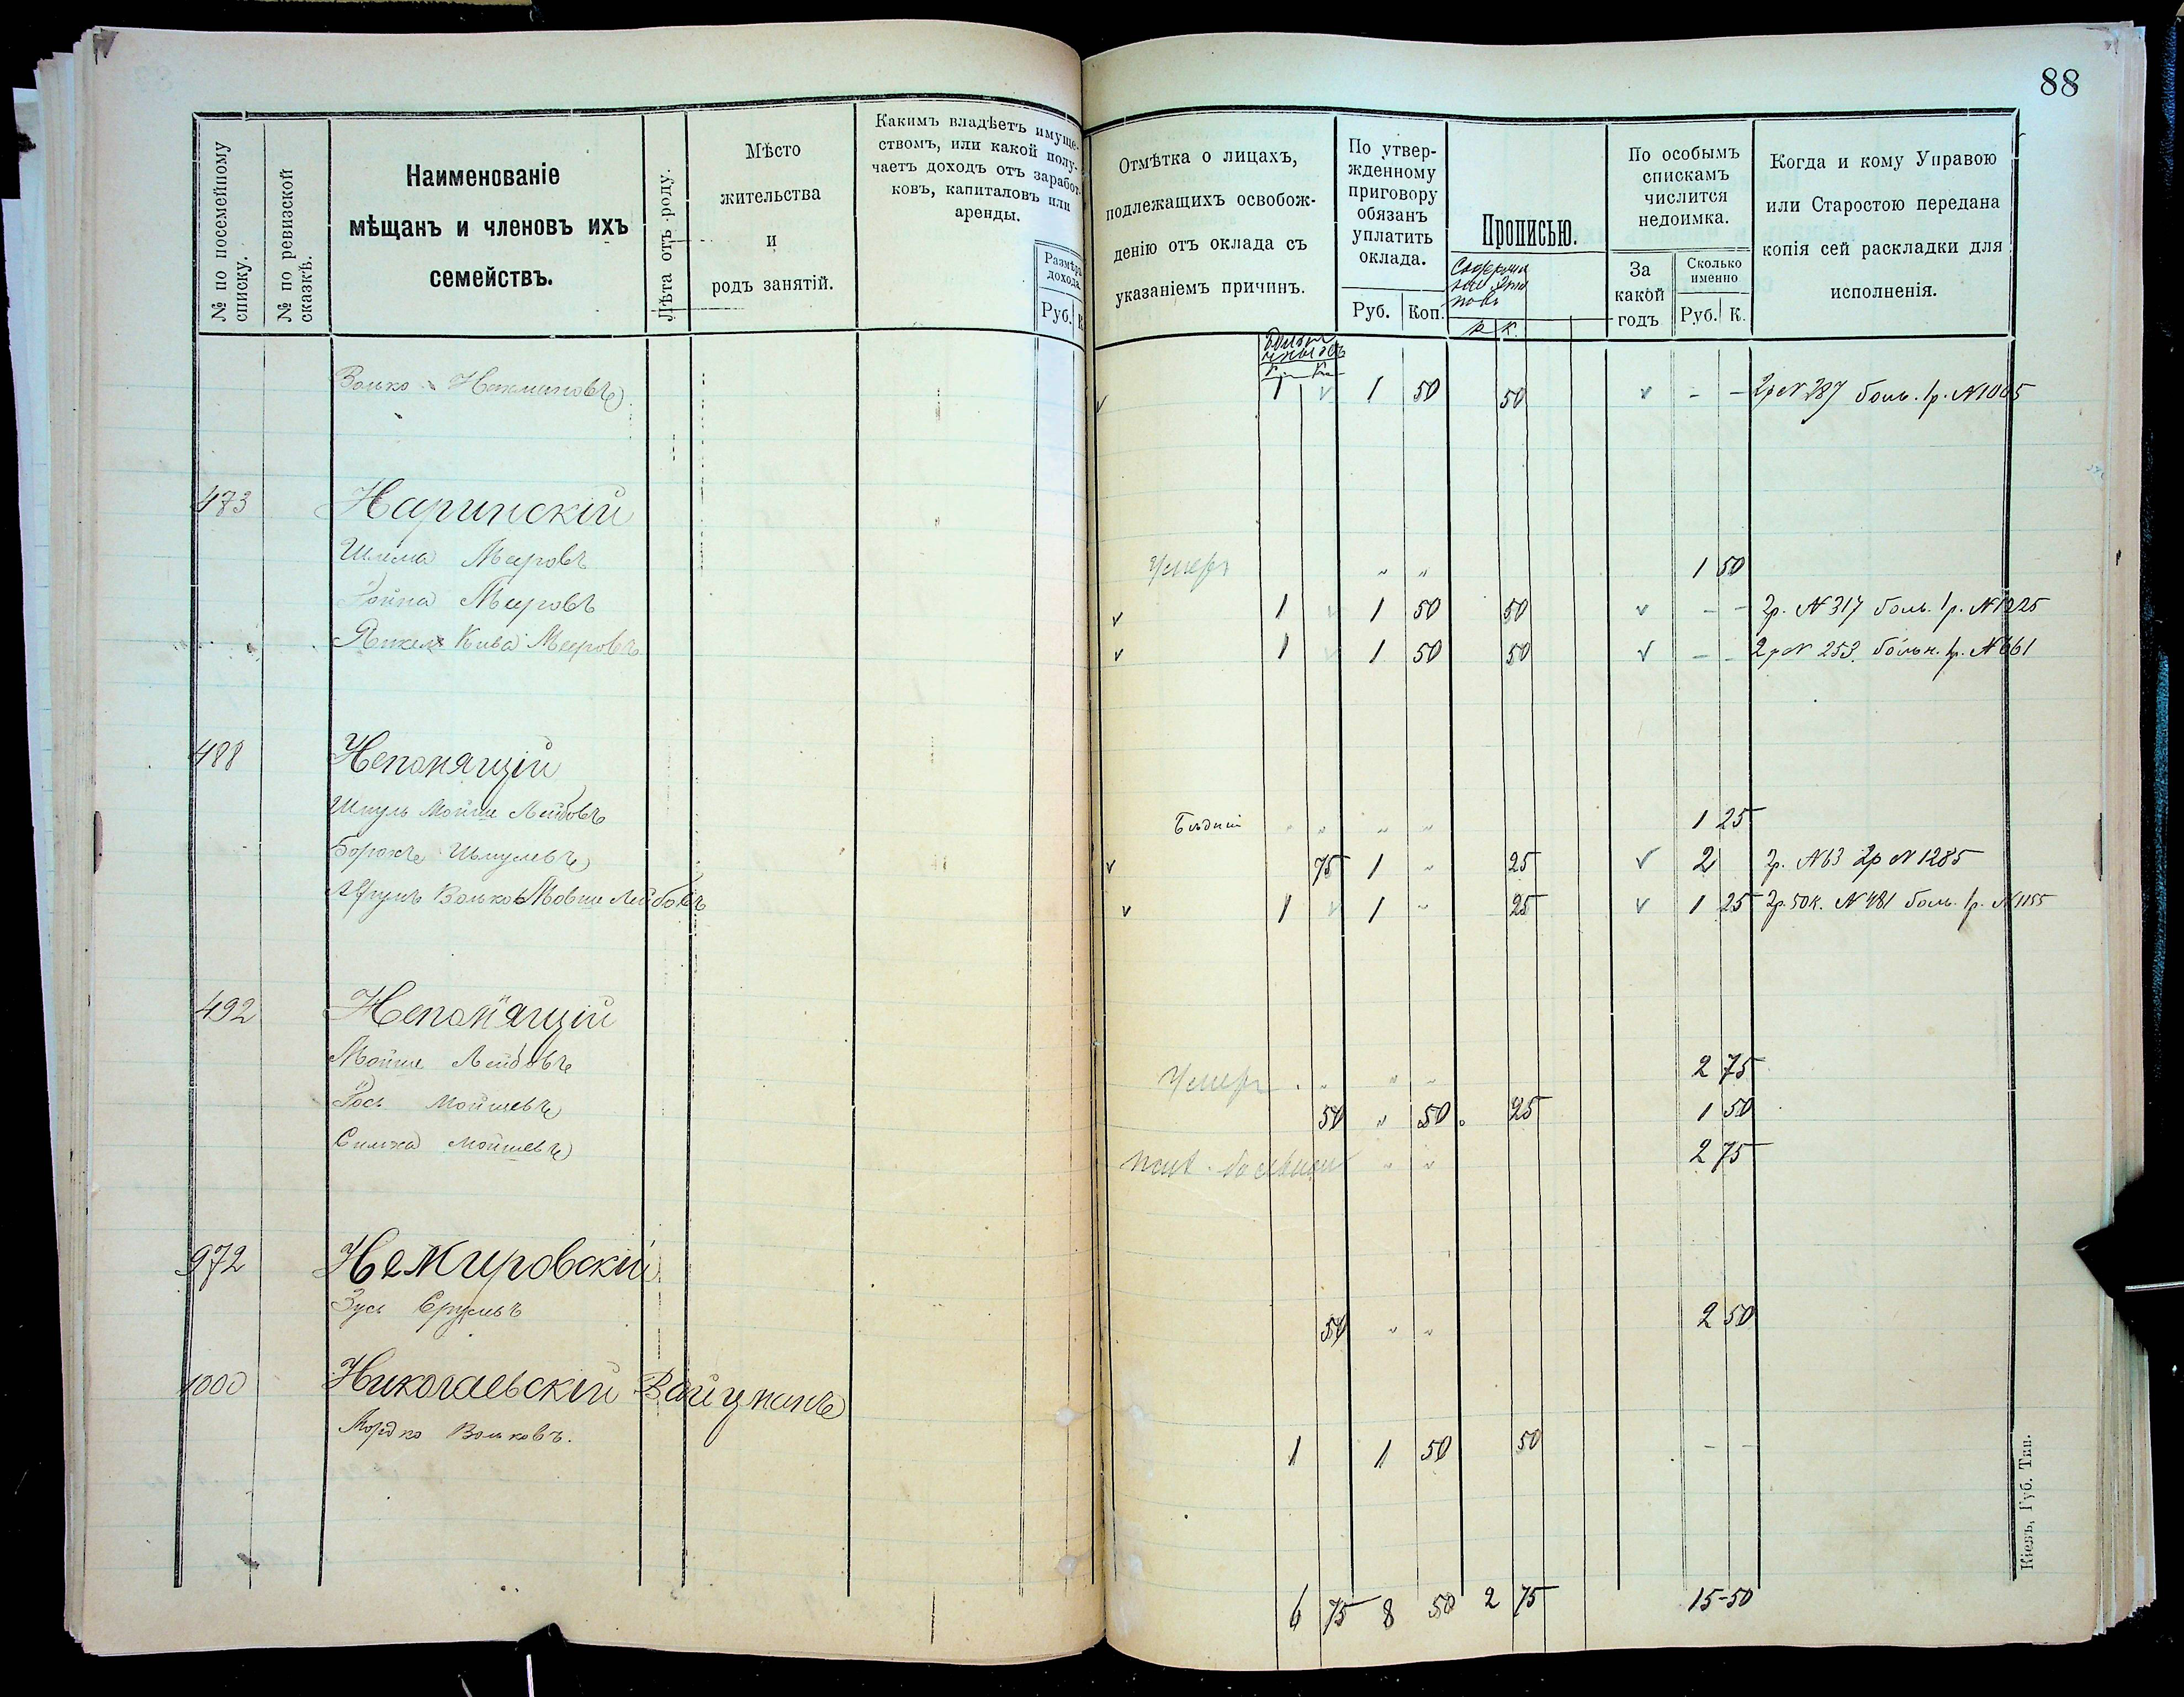 88
№ по посемейному списку.
№ по ревизской сказкѣ.
Наименованіе
мѣщанъ и членовъ ихъ
семействъ.
Лѣта отъ роду.
Мѣсто
жительства
и
родъ занятій.
Какимъ владѣетъ имуще-
ствомъ, или какой полу-
чаетъ доходъ отъ заработ-
ковъ, капиталовъ или
аренды.
Размѣръ
дохода.
Руб. К.
Отмѣтка о лицахъ,
подлежащихъ освобож-
денію отъ оклада съ
указаніемъ причинъ.
По утвер-
жденному
приговору
обязанъ
уплатить
оклада.
Руб. Коп.
Прописью.
Р К
По особымъ
спискамъ
числится
недоимка.
За
какой
годъ
Сколько
именно
Руб. К.
Когда и кому Управою
или Старостою передана
копія сей раскладки для
исполненія.
Волко Нахмановъ 1 v 1 50 50 v - - 2р N 387 боль. 1р. N 1005
473 Наринскій
Шлема Мееровъ Умеръ " " 1 50
Мееровъ v 1 v 1 50 50 v - - 2р. N 317 боль. 1р. N 1225
Янкель Кива Мееровъ v 1 v 1 50 50 v - - 2р N 253. больн. 1р. N 661
488 Непомнящій
Шмуль Мойше Лейбовъ Бѣдный " " " " 1 25
Борохъ Шмулевъ v 75 1 " 25 v 2 2р. N 63 2р N 1285
Волько Мовше Лейбовъ v 1 v 1 " 25 v 1 25 2р. 50к. N 481 боль. 1р. N 1155
492 Непомнящій
Мойше Лейбовъ Умеръ " " " 2 75
Іось Мойшевъ 50 " 50 25 1 50
Симха Мойшевъ " " 2 75
972 Немировскій
Зусь Срулевъ 50 " " 2 50
1000 Николаевскій Вайцманъ
Мордко Вольковъ. 1 1 50 50 - -
6 75 8 50 2 75 15-50
Кіевъ, Губ. Тип.